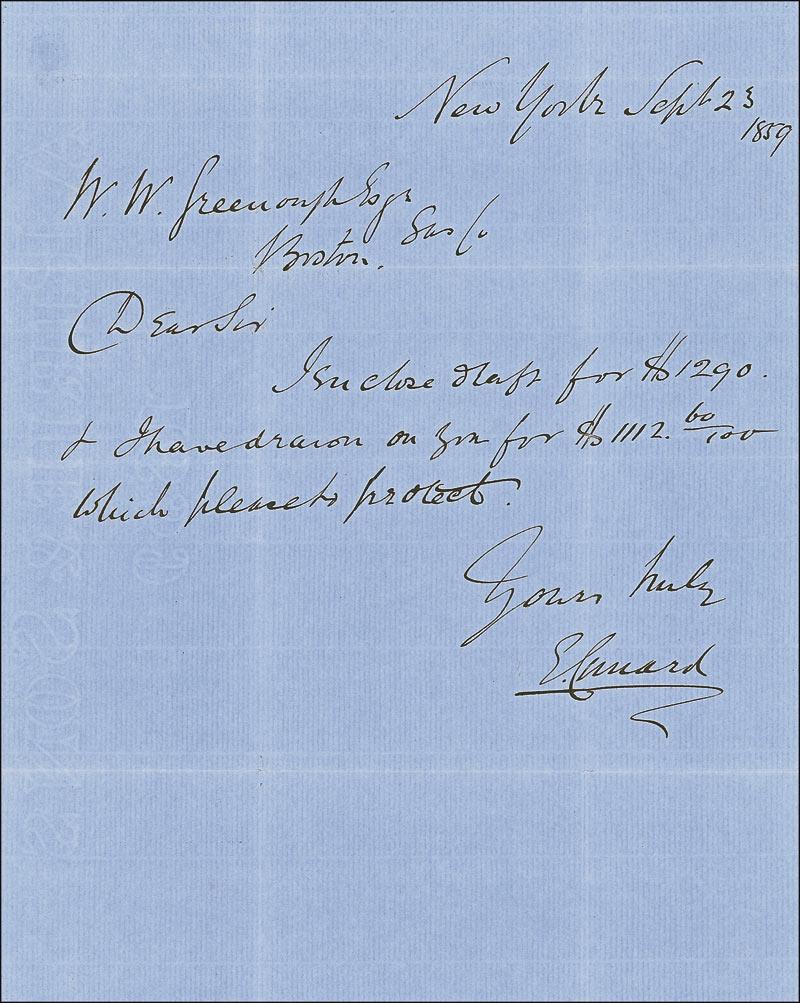 New York Sept 23
1859
W. W. Greenough Esqr
Boston. Gas Co
Dear Sir
I enclose draft for $1290.
& I have drawn on you for $1112. 60/100
which please to protect.
Yours truly
E. Cunard
& SONS